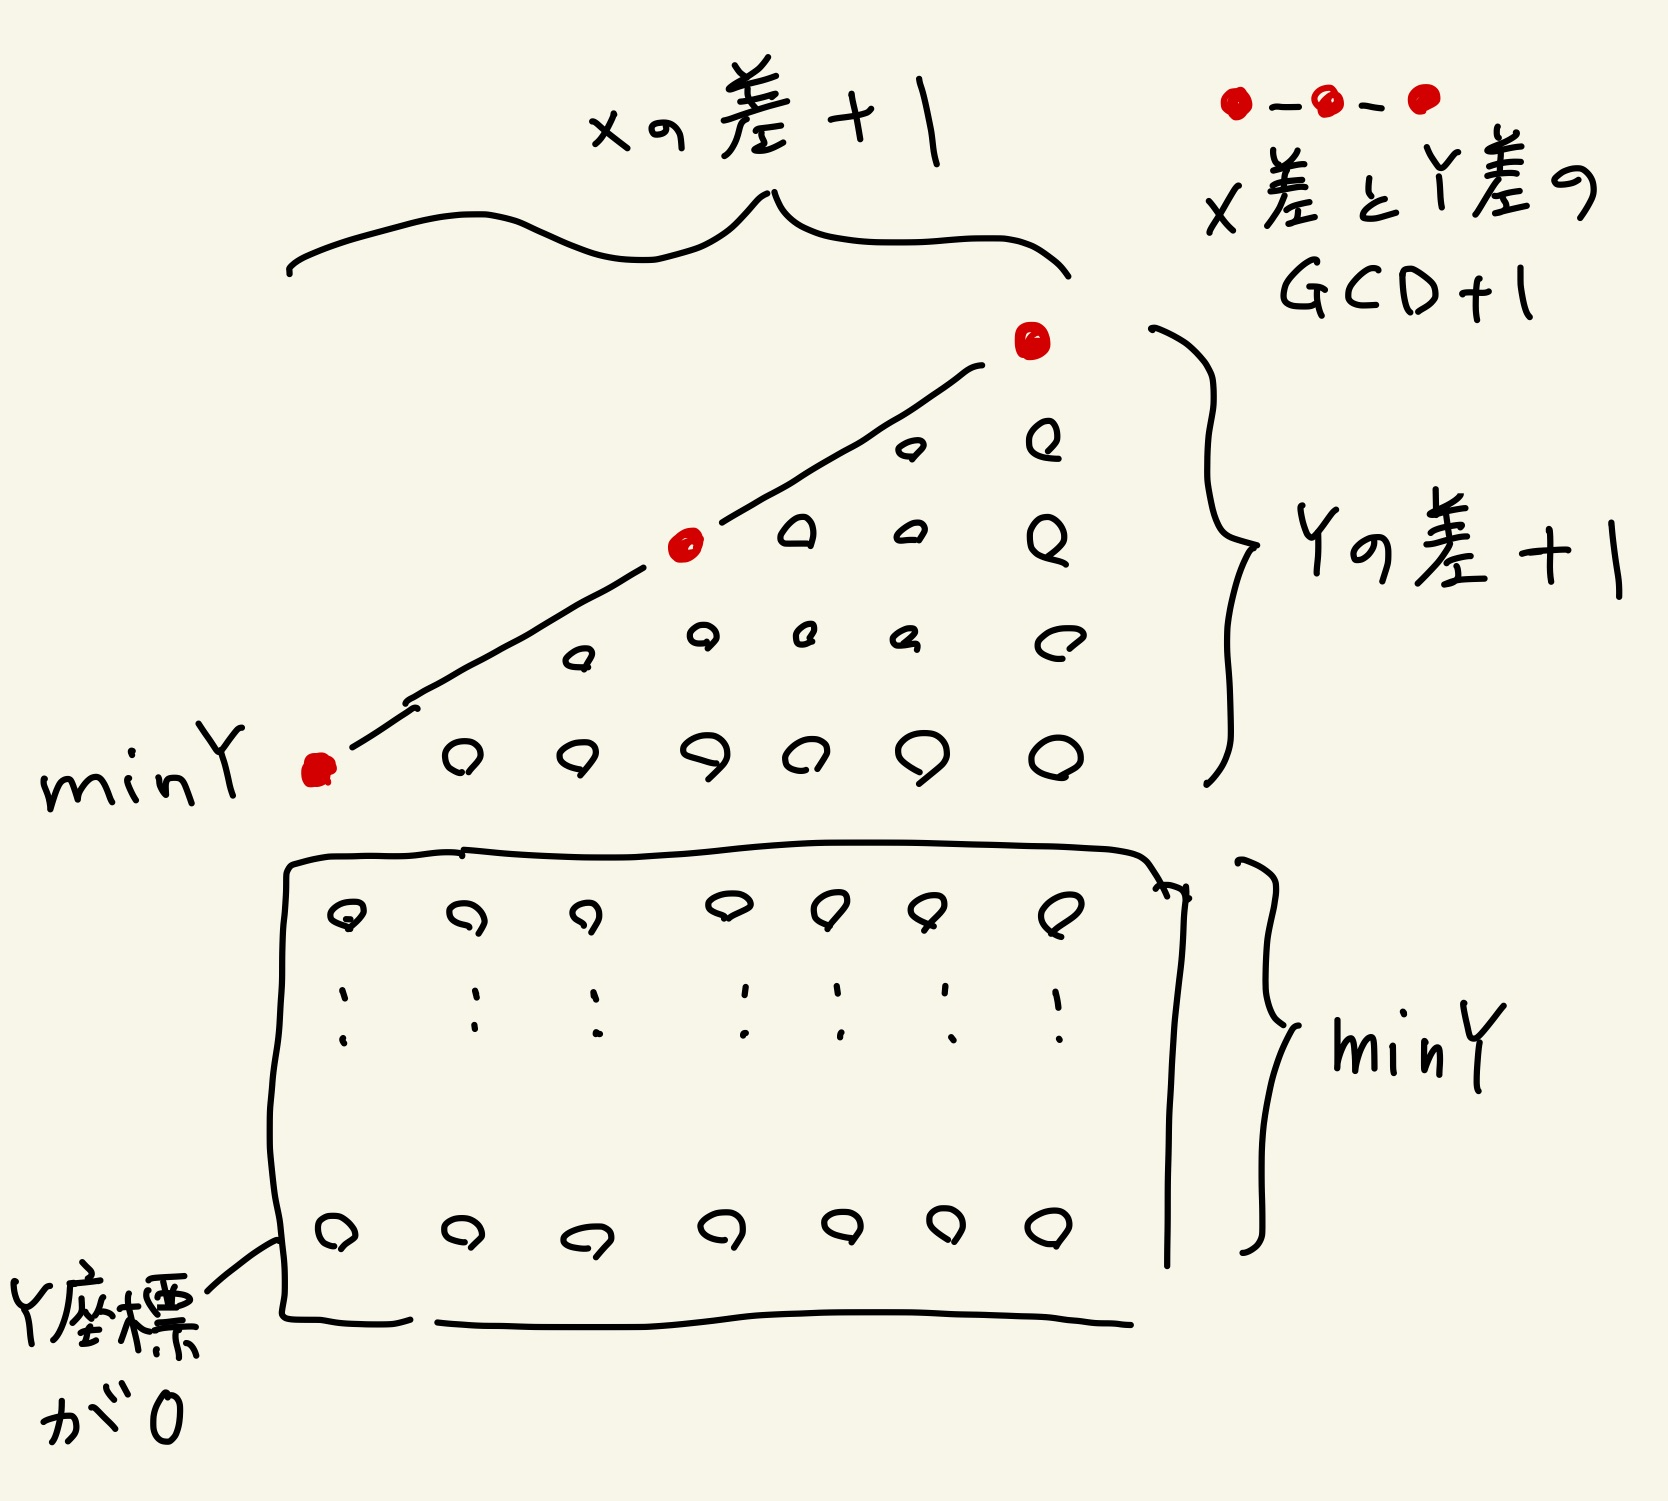 xの差+1
x差とY差の
GCD+1
Yの差+1
minY
minY
Y座標
が0